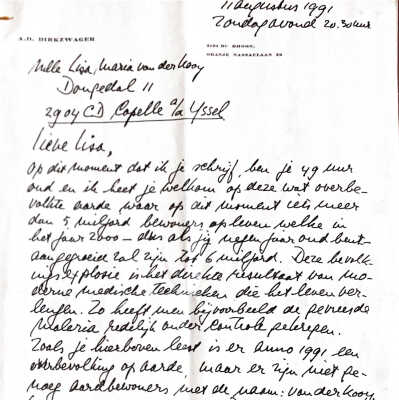 11 augustus 1991
Zondagavond 20.30 uur
A.D. DIRKZWAGER
ORANJE NASSAULAAN 29
Lisa, Maria van der Kooy
Dongedal 11
2904 CD Capelle a/d Yssel
Lieve Lisa,
Op dit moment dat ik je schrijf, ben je 49 uur
oud en ik heet je welkom op deze wat overbe-
volkte aarde, waar op dit moment iets meer
dan 5 miljard bewoners op leven welke in
het jaar 2000 - dus als jij negen jaar oud bent -
aangegroeid zal zijn tot 6 miljard. Deze bevolk-
ings explosie is het directe resultaat van mo-
derne medische technieken die het leven ver-
lengen. Zo heeft men bijvoorbeeld de gevreesde
malaria redelijk onder controle gekregen.
Zoals je hierboven leest is er anno 1991 een
overbevolking op aarde, maar er zijn niet ge-
noeg aardbewoners met de naam: van der Kooy.